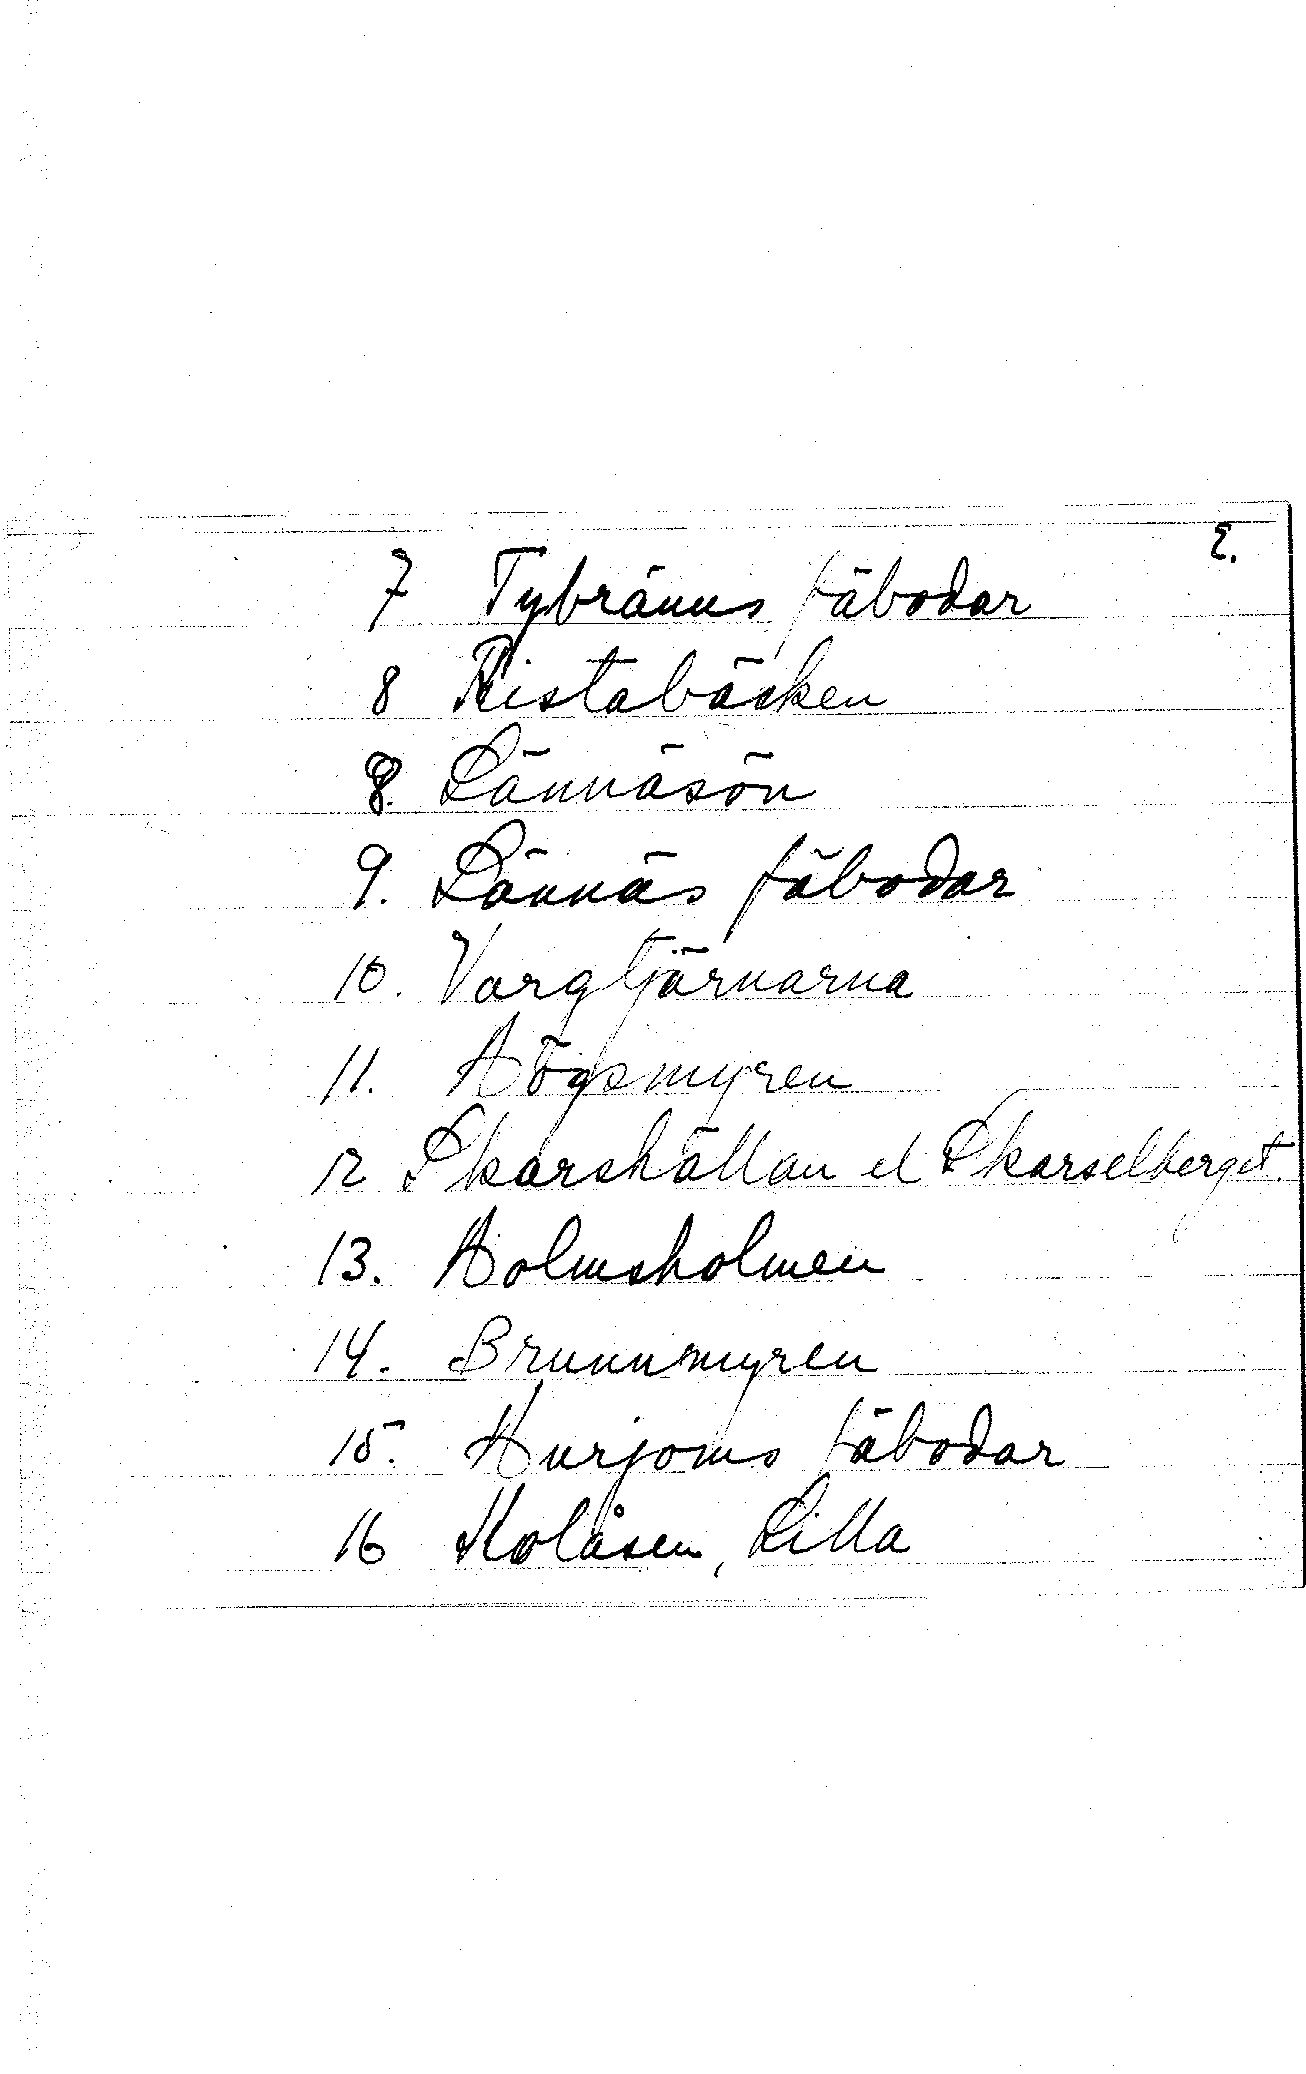 2.
7 Tybränns fäbodar
8 Ristabäcken
8. Lännäsön
9. Lännäs fäbodar
10. Vargtjärnarna
11. Högsmyren
12 Skarshällan el Skarselberget.
13. Holmsholmen
14. Brunnsmyren
15. Hurjoms fäbodar
16 Kolåsen, Lilla